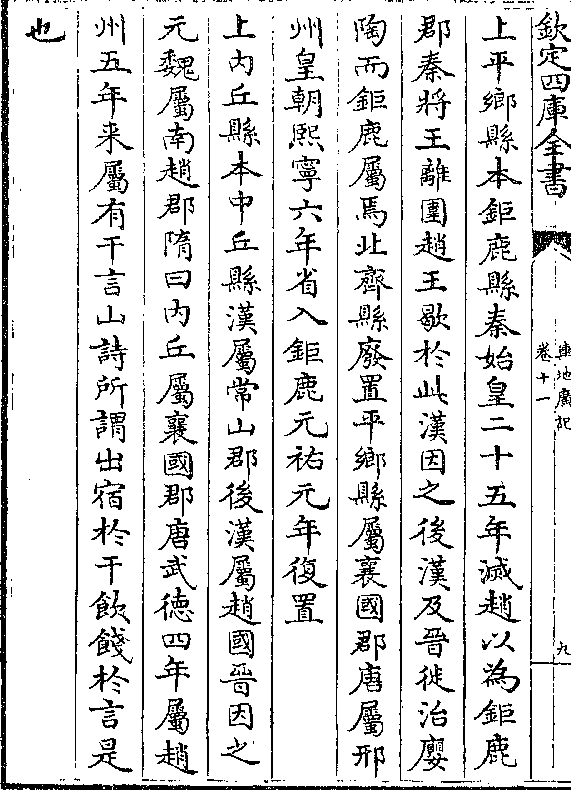 欽定四庫全書
輿地廣記
卷十一
九
上平鄉縣本鉅鹿縣秦始皇二十五年滅趙以為鉅鹿
郡秦將王離圍趙王歇於此漢因之後漢及晉徙治廮
陶而鉅鹿屬焉北齊縣廢置平鄉縣屬襄國郡唐屬邢
州皇朝熙寧六年省入鉅鹿元祐元年復置
上內丘縣本中丘縣漢屬常山郡後漢屬趙國晉因之
元魏屬南趙郡隋曰內丘屬襄國郡唐武德四年屬趙
州五年来屬有干言山詩所謂出宿於干飲餞於言是
也